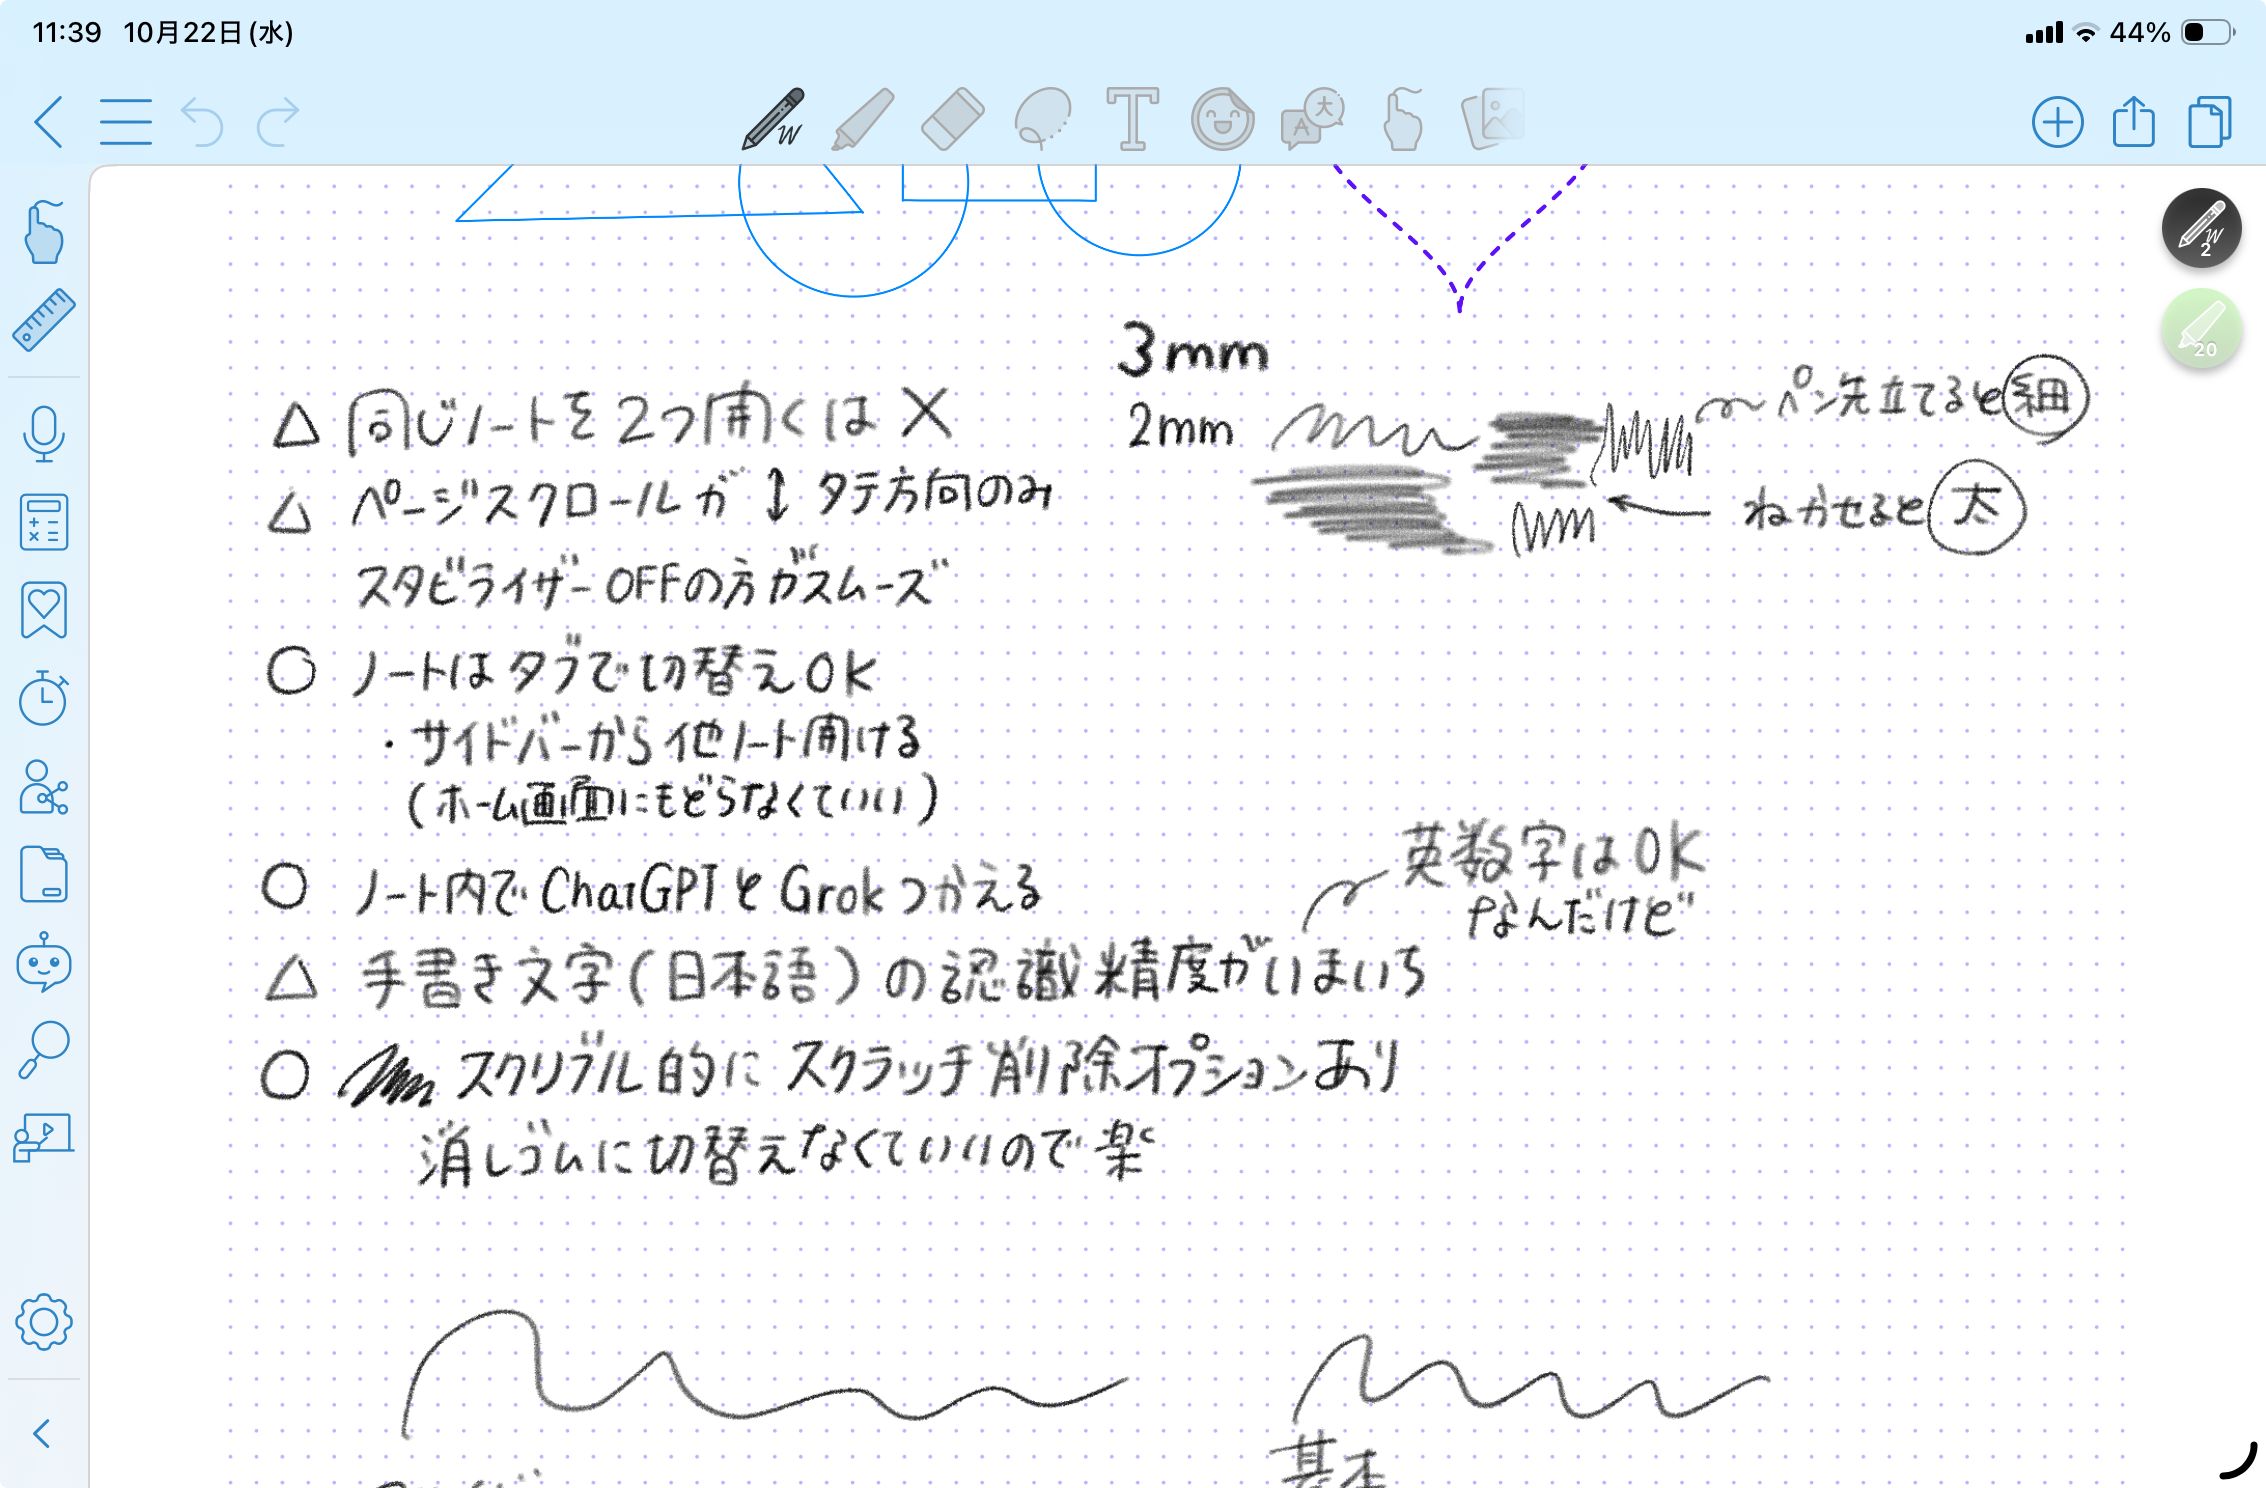 11:39 10月22日(水) 44%
2
20
3mm
2mm
ペン先立てると細
ねかせると太
△ 同じノートを2つ開くは×
△ ページスクロールが↕タテ方向のみ
スタビライザーOFFの方がスムーズ
○ ノートはタブで切替えOK
・サイドバーから他ノート開ける
(ホーム画面にもどらなくていい)
○ ノート内でChatGPTとGrokつかえる
英数字はOK
なんだけど
△ 手書き文字(日本語)の認識精度がいまいち
○ スクリブル的にスクラッチ削除オプションあり
消しゴムに切替えなくていいので楽
基本